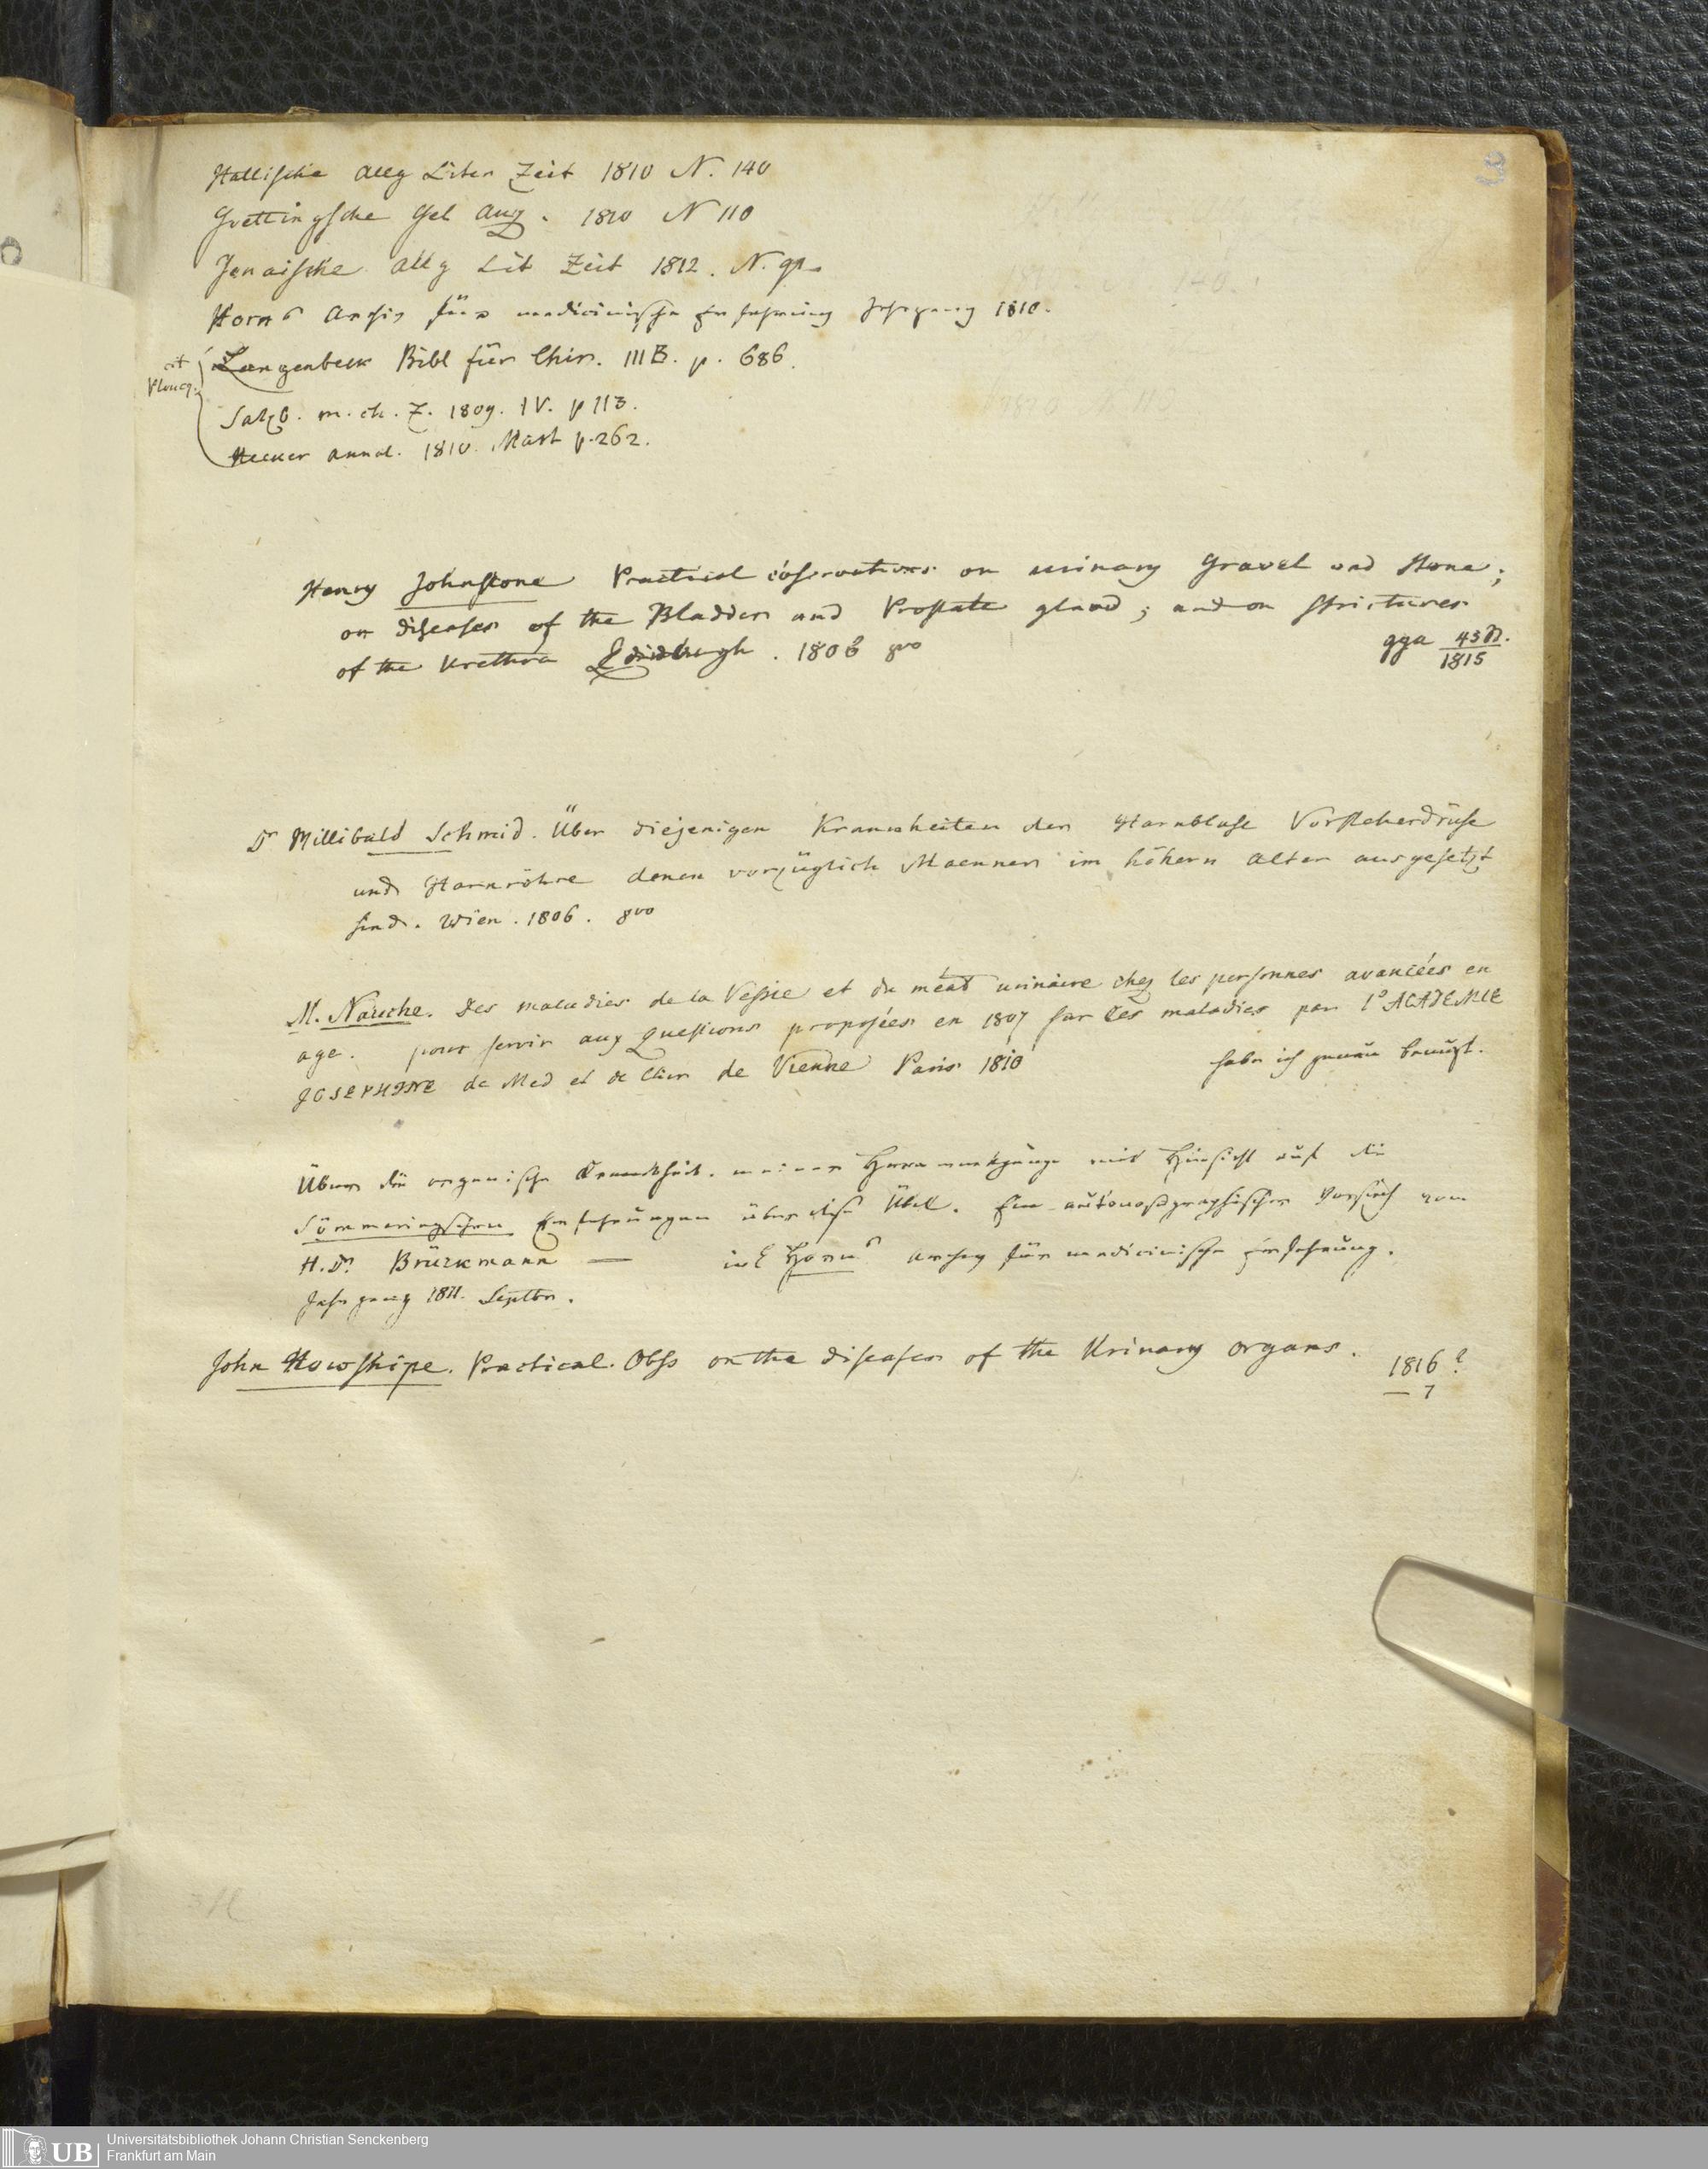 Hallische Allg Liter Zeit 1810 N. 140
Goettingsche Gel Anz. 1810 N 110
Jenaische Allg Lit Zeit 1812. N. 91.
Horns Archiv für medicinische Erfahrung Jahrgang 1810.
Langenbeck Bibl für Chir. III B. p. 686.
cit
Ploucq.
Salzb. m. ch. Z. 1809. IV. p 113.
Hecker annal. 1810. Mart p. 262.
Henry Johnstone Practical observations on urinary Gravel and Stone;
on diseases of the Bladder and Prostate gland; and on strictures
of the Urethra Edinburgh. 1806 8vo
gga 43 N.
1815
Dr Willibald Schmid. Über diejenigen Krankheiten der Harnblase Vorsteherdrüse
und Harnröhre denen vorzüglich Maenner im höhern Alter ausgesetzt
sind. Wien. 1806. 8vo
M. Nauche. Des maladies de la Vessie et du méat urinaire chez les personnes avancées en
age. pour servir aux Questions proposées en 1807 sur les maladies par l'ACADEMIE
JOSEPHINE de Med et de Chir de Vienne Paris 1810
habe ich genau benuzt.
Über die organische Krankheit meiner Harnwerkzeuge mit Hinsicht auf die
Sömmeringschen Erfahrungen über diese Übel. Ein autonosographischer Versuch von
H. Dr. Brückmann — in Horns Archiv für medicinische Erfahrung.
Jahrgang 1811. Septbr.
John Howshipe. Practical. Obss on the diseases of the Urinary organs.
1816?
— 7
Universitätsbibliothek Johann Christian Senckenberg
Frankfurt am Main
UB